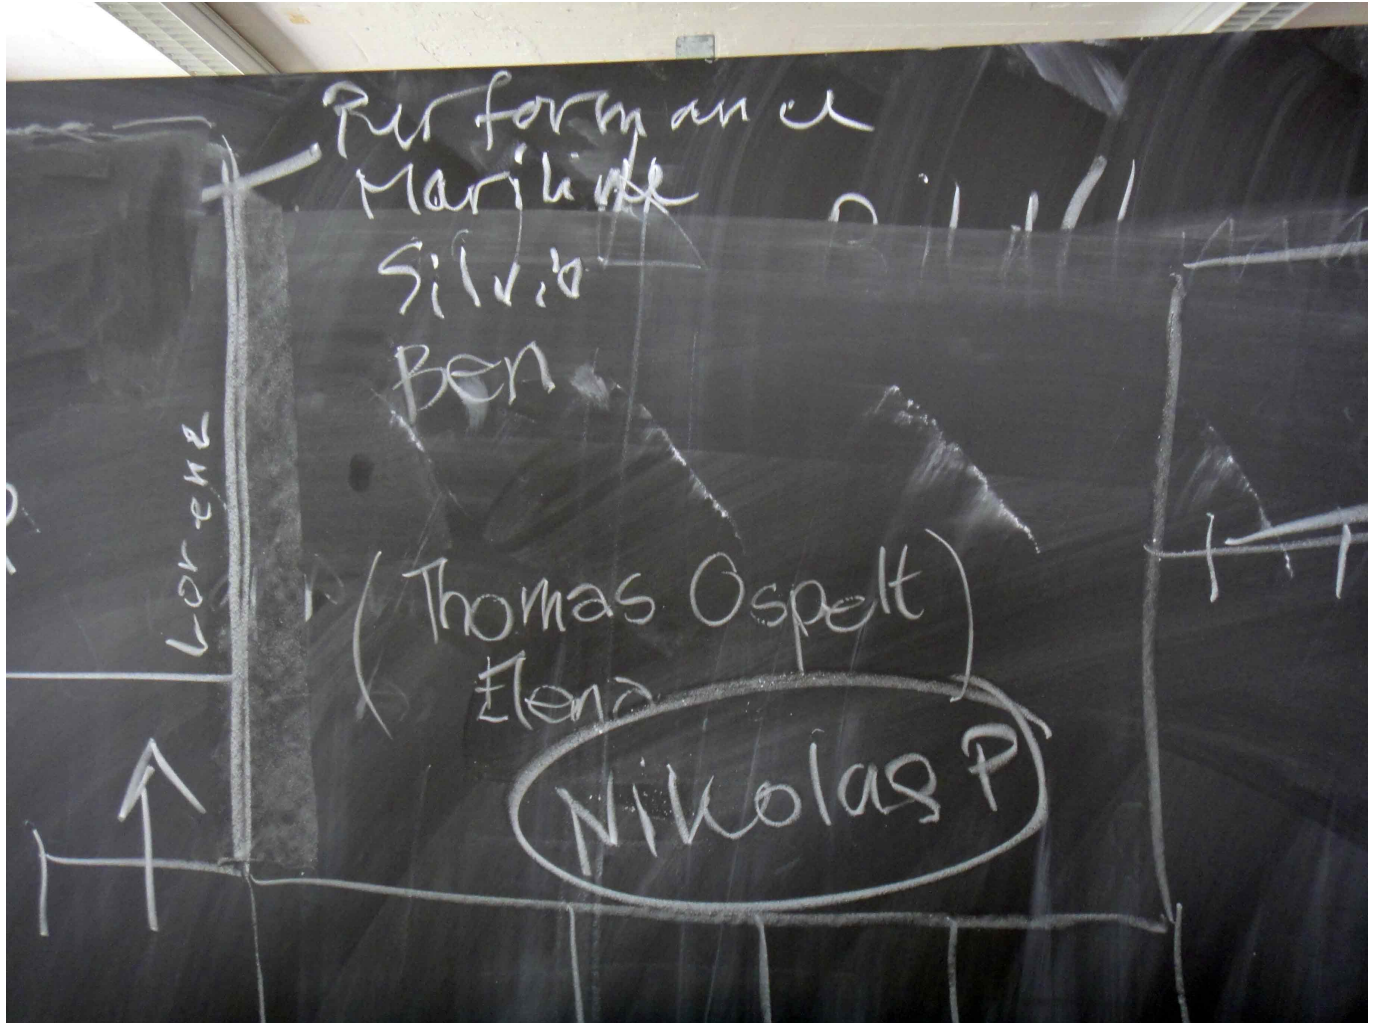 Performance
Silvia
Ben
Lorenz
(Thomas Ospelt)
Elena
Nikolas P